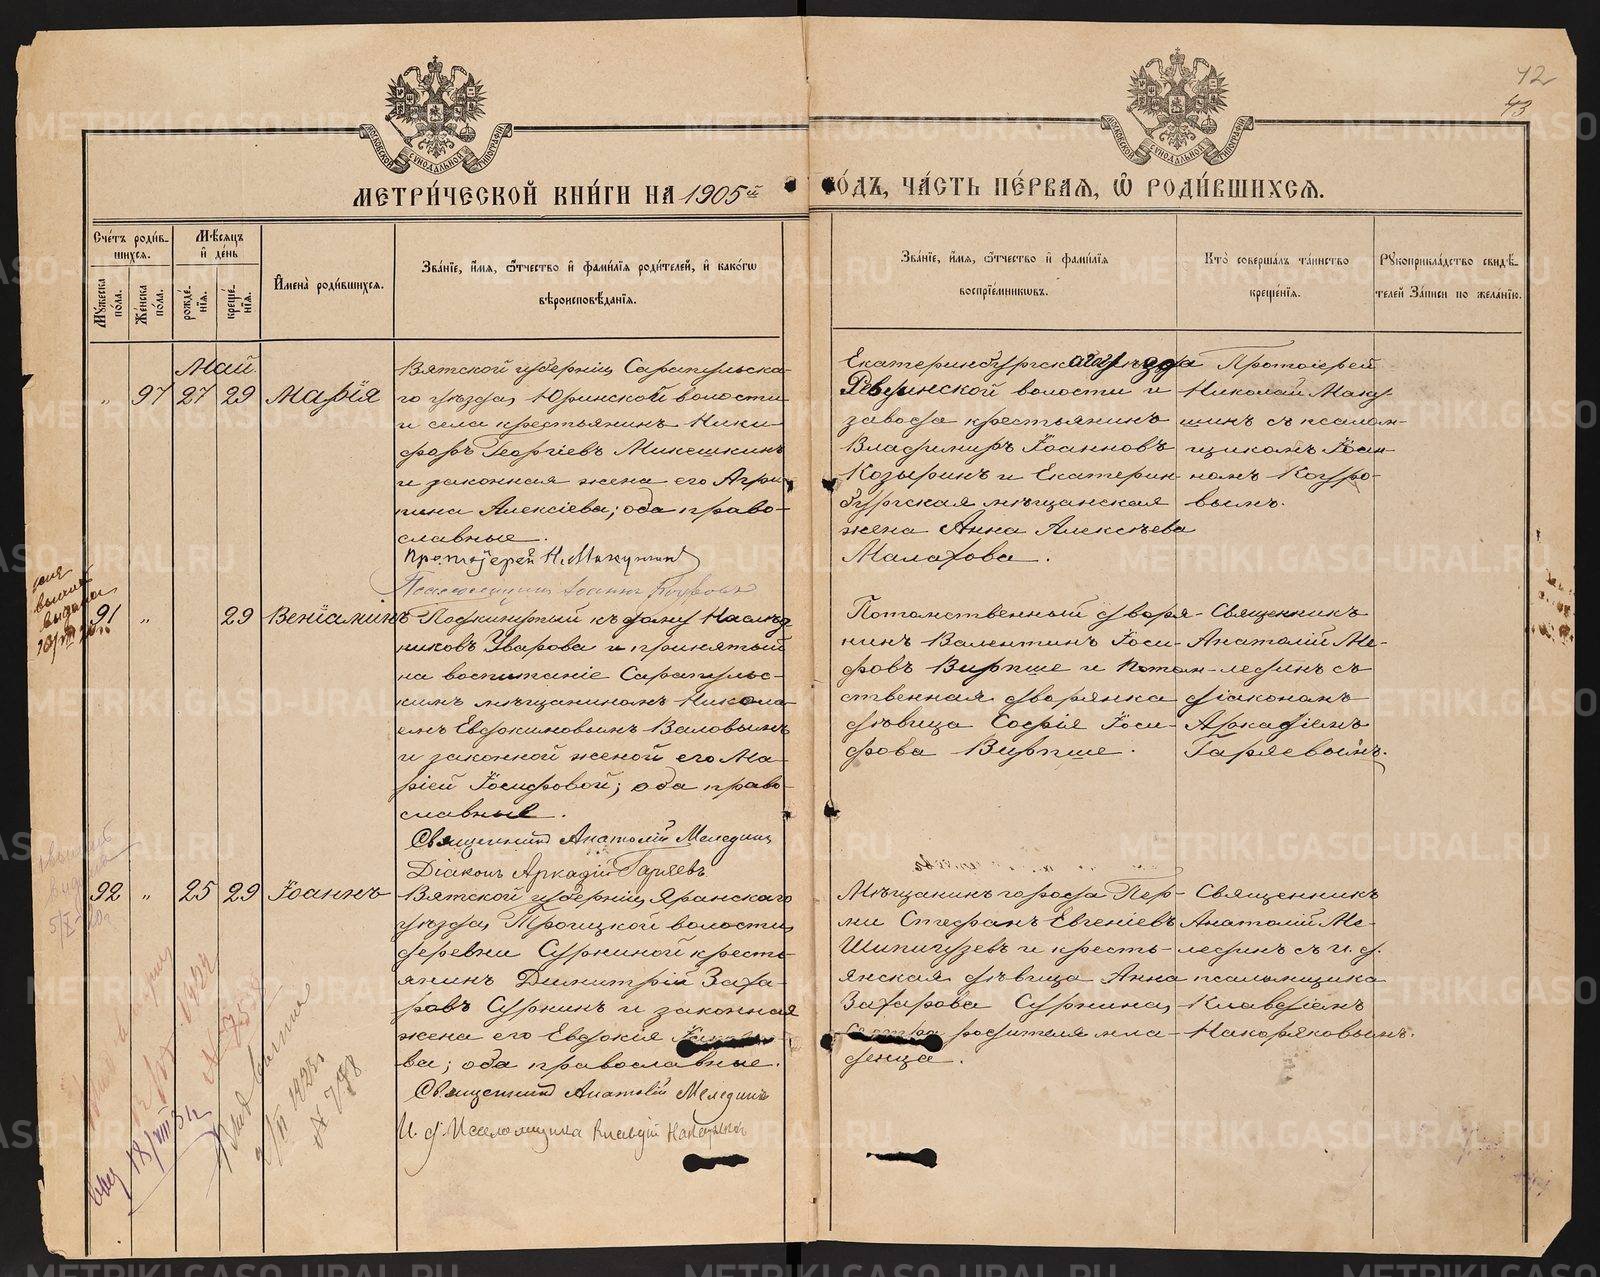 42
43
МЕТРИ́ЧЕСКОЙ КНИ́ГИ НА 1905й
ГО́ДЪ, ЧА́СТЬ ПЕ́РВАѦ, Ѡ҆ РОДИ́ВШИХСѦ.
Сче́тъ роди́в-
шихсѧ.
Мꙋ́жеска пола.
Же́нска по́ла.
Мѣ́сѧцъ
и҆ де́нь
рожде́-
нїѧ.
креще́-
нїѧ.
И҆мена̀ роди́вшихсѧ.
Зва́нїе, и҆́мѧ, ѻ҆́тчество и҆ фами́лїѧ роди́телей, и҆ како́гѡ
вѣроисповѣ́данїѧ.
Зва́нїе, и҆́мѧ, ѻ҆́тчество и҆ фами́лїѧ
воспрїе́мникѡвъ.
Кто̀ соверша́лъ та́инство
креще́нїѧ.
Рꙋкоприкла́дство свидѣ́-
телей За́писи по жела́нїю.
Май
„ 97 27 29 Марія
Вятской губерніи Сарапульска-
го уѣзда, Юринской волости
и села крестьянинъ Ники-
форъ Георгіевъ Микешкинъ
и законная жена его Агри-
пина Алексіева; оба право-
славные.
Протоіерей Н. Макушинъ
Псаломщикъ Іоаннъ Коуровъ
Екатеринбургскаго уѣзда
Ревдинской волости и
завода крестьянинъ
Владимиръ Іоанновъ
Козыринъ и Екатерин-
бургская мѣщанская
жена Анна Алексѣева
Малахова.
Протоіерей
Николай Маку-
шинъ съ псалом-
щикомъ Іоан-
номъ Коуро-
вымъ.
91 „ 29 Веніаминъ
Подкинутый къ дому Наслѣд-
никовъ Уварова и принятый
на воспитаніе Сарапульс-
кимъ мѣщаниномъ Никола-
емъ Евдокимовымъ Валовымъ
и законной женой его Ма-
ріей Іосифовой; оба право-
славные.
Священникъ Анатолій Меледин
Діаконъ Аркадій Гаряевъ
Потомственный дворя-
нинъ Валентинъ Іоси-
фовъ Вирпше и потом-
ственная дворянка
дѣвица Софія Іоси-
фова Вирпше.
Священникъ
Анатолій Ме-
лединъ съ
діакономъ
Аркадіемъ
Гаряевымъ.
выписъ
выдана
5/X-20г
92 „ 25 29 Іоаннъ
Вятской губерніи, Яранскаго
уѣзда, Троицкой волости,
деревни Суркиной кресть-
янинъ Димитрій Заха-
ровъ Суркинъ и законная
жена его Евдокія
ва; оба православные.
Священникъ Анатолій Меледин
И. д. Псаломщика Клавдій Накоряковъ
Мѣщанинъ города Пер-
ми Стефанъ Евгеніевъ
Шипигузевъ и кресть-
янская дѣвица Анна
Захарова Суркина,
сестра родителя мла-
денца.
Священникъ
Анатолій Ме-
лединъ съ и. д.
псаломщика
Клавдіемъ
Накоряковымъ.
18/VIII 31г